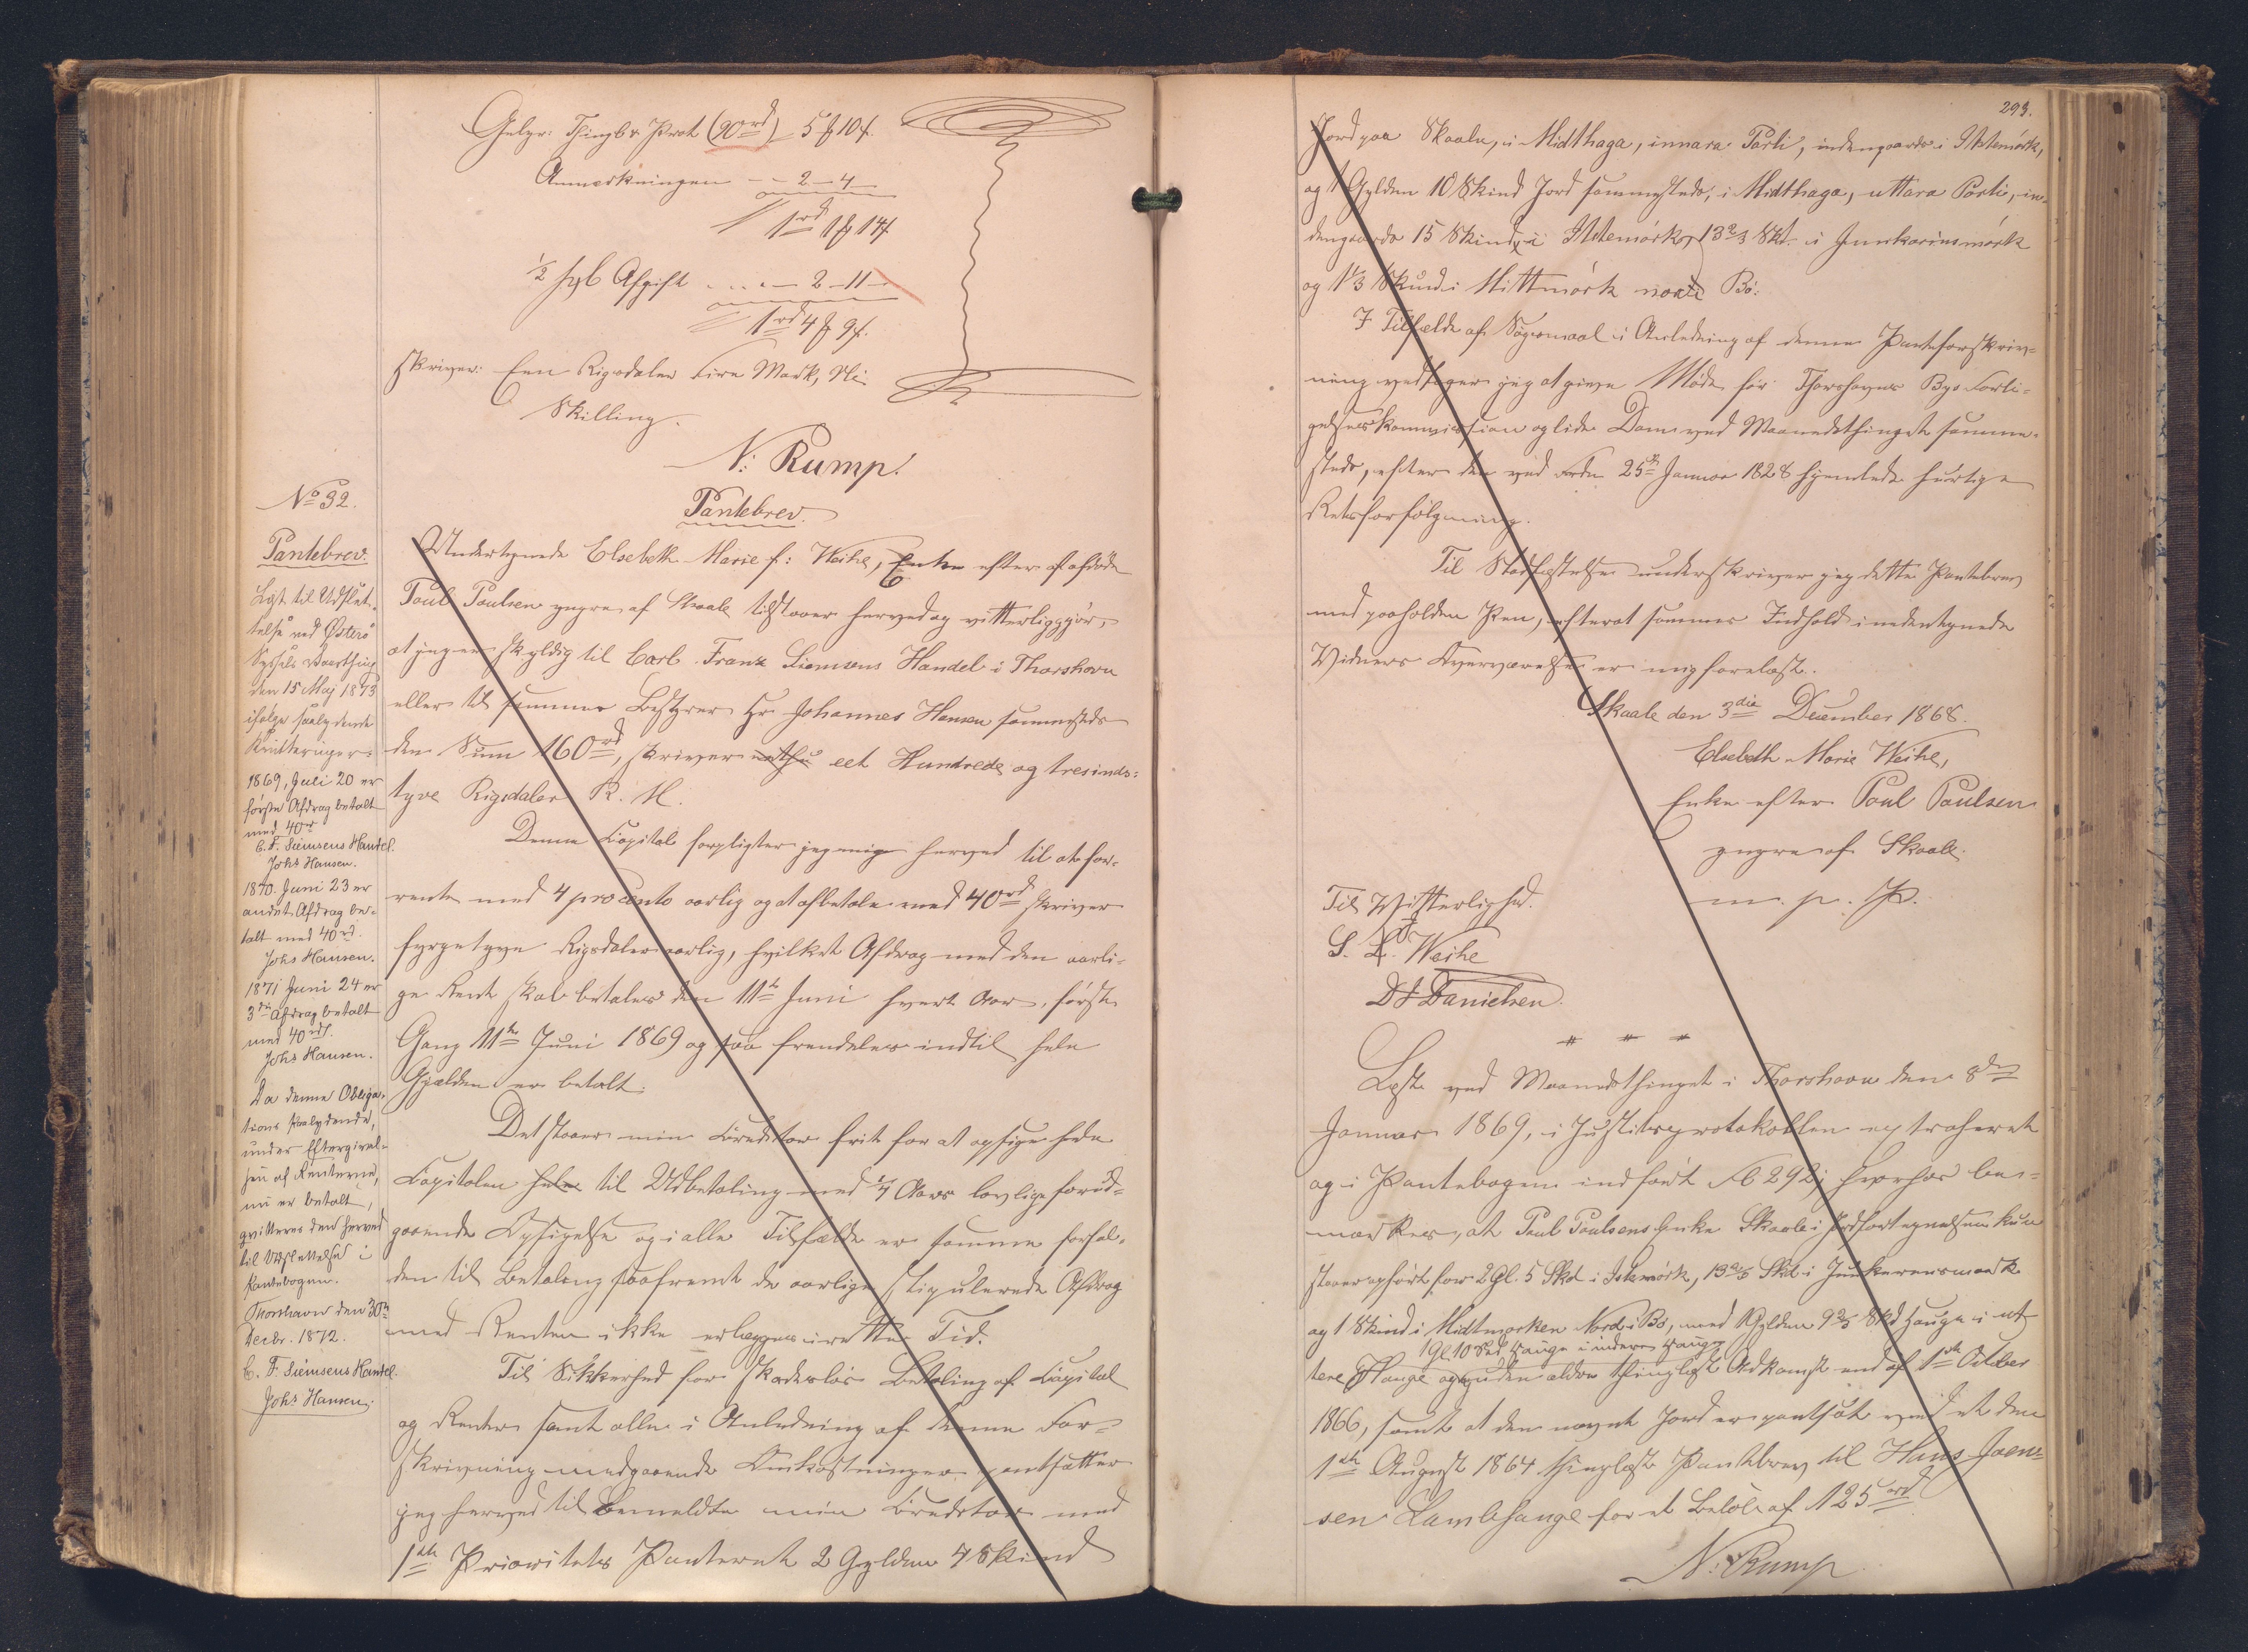 Gebyr: Thingl. Prot (90rd) 5 ₰ 10 ß.
Anmærkningen - - 2 - 4 -
1rd 1 ₰ 14 ß
1/2 Afgift . . . . - 2 - 11 -
1rd 4 ₰ 9 ß.
skriver: Een Rigsdaler Fire Mark, Ni
Skilling.
N. Rump.
No 32.
Pantebrev.
Læst til Udslet-
telse ved Østerø
Syssels Vaarthing
den 15 Maj 1873
ifølge saalydende
Kvitteringer:
1869, Juli 20 er
første Afdrag betalt
med 40rd
C. F. Siemsens Handel.
Johs Hansen.
1870. Juni 23 er
andet Afdrag be-
talt med 40rd.
Johs Hansen.
1871 Juni 24 er
3die Afdrag betalt
med 40rd.
Johs Hansen.
Da denne Obliga-
tions Paalydende,
under Eftergivel-
sen af Renterne,
nu er betalt,
qvitteres den herved
til Udslettelse i
Pantebogen.
Thorshavn den 30te
Decbr. 1872.
C. F. Siemsens Handel.
Johs Hansen.
Pantebrev.
Undertegnede Elsebeth Marie f: Weihe, Enke efter afdøde
Poul Poulsen yngre af Skaale tilstaaer herved og vitterliggjør,
at jeg er skyldig til Carl Franz Siemsens Handel i Thorshavn
eller til samme Bestyrer Hr Johannes Hansen sammesteds
den Sum 160rd, skriver eet Hundrede og tresinds-
tyve Rigsdaler R. M.
Denne Capital forpligter jeg mig herved til at for-
rente med 4 pro Cento aarlig og at afbetale med 40rd skriver
fyrgetyve Rigsdaler aarlig, hvilket Afdrag med den aarli-
ge Rente skal betales den 11te Juni hvert Aar, første
Gang 11te Juni 1869 og saa fremdeles indtil hele
Gjælden er betalt.
Det staaer min Creditor frit for at opsige hele
Capitalen hele til Udbetaling med 1/4 Aars lovlige forud-
gaaende Opsigelse og i alle Tilfælde er samme forfal-
den til Betaling saafremt de aarlige stipulerede Afdrag
med Renten ikke erlægges i rette Tid.
Til Sikkerhed for skadesløs Betaling af Capital
og Renter samt alle i Anledning af denne For-
skrivning medgaaende Omkostninger pantsætter
jeg herved til bemeldte min Creditor med
1ste Prioritets Panteret 2 Gylden 4 Skind
293.
Jord paa Skaale, i Midthaga, innara Parti, indengaards i Istemørk,
og 1 Gylden 10 Skind Jord sammesteds, i Midthaga, uttara Parti, in-
dengaards 15 Skind, i Istemørk, 13 2/3 Skd. i Junkarinsmørk
og 1 1/3 Skind i Mittmørk norđi Bø.
I Tilfælde af Søgsmaal i Anledning af denne Panteforskriv-
ning vedtager jeg at give Møde for Thorshavns Byes Forli-
gelses Kommission og lide Dom ved Maanedsthinget samme-
steds, efter den ved Frdn 25de Januar 1828 hjemlede hurtige
Retsforfølgning.
Til Stadfæstelse underskriver jeg dette Pantebrev
med paaholden Pen, efterat sammes Indhold i nedentegnede
Vidners Overværelse er mig forelæst.
Skaale den 3die December 1868.
Elsebeth Marie Weihe,
Enke efter Poul Poulsen
yngre af Skaale.
m. p. P.
Til Vitterlighed.
S. L. Weihe
D J Danielsen.
Læst ved Maanedsthinget i Thorshavn den 8de
Januar 1869, i Justitsprotokollen extraheret
og i Pantebogen indført Fol 292; hvorhos be-
mærkes, at Poul Poulsens Enke Skaale i Jordfortegnelsen kun
staaer opført for 2 Gl. 5 Skd i Istemørk, 13 2/3 Skd i Junkerensmørk
og 1 Skind i Midtmørken Nord i Bø, med 1 Gylden 9 2/3 Skd Hauge i ut-
1 Gl. 10 Skd Hauge i inderen Hauge
tere Hauge og uden ældre thinglæst Adkomst end af 1ste October
1866, samt at den nævnte Jord er pantsat ved et den
1ste August 1864 thinglæst Pantebrev til Hans Joen-
sen Lambehauge for et Beløb af 125rd
N. Rump